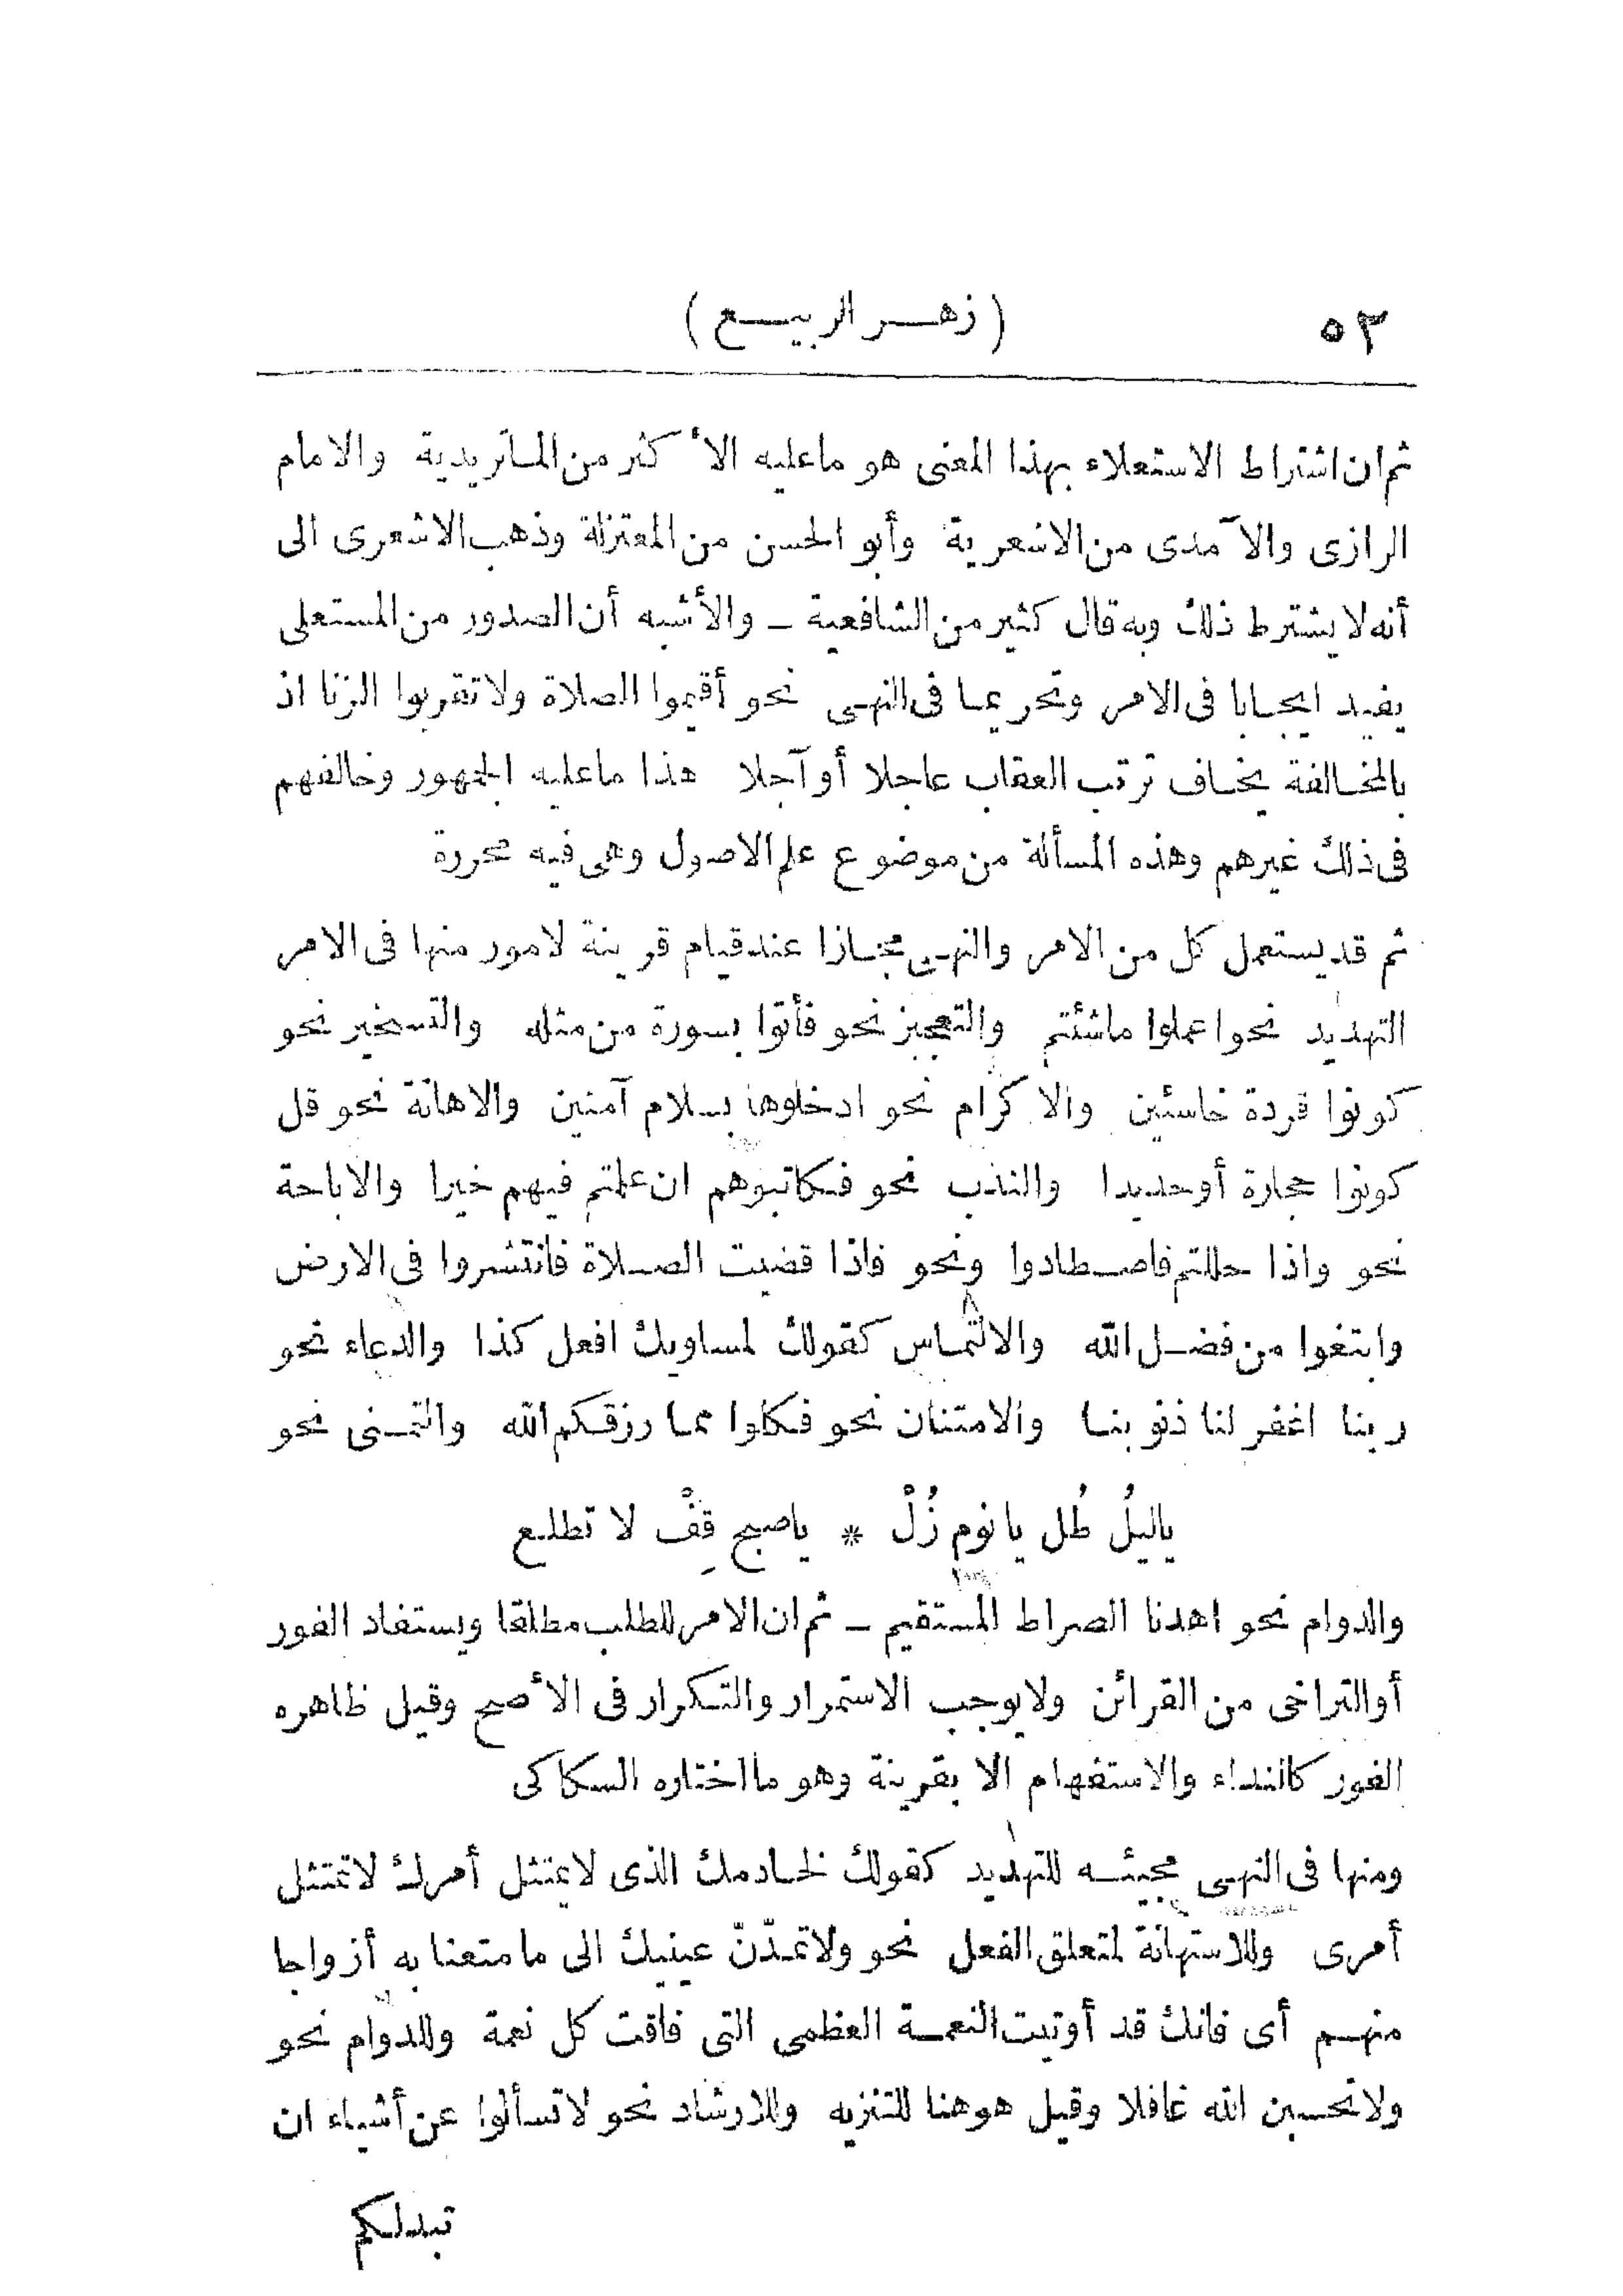 ٥٢ (زهر الربيع)
ثم ان اشتراط الاستعلاء بهذا المعنى هو ما عليه الأكثر من الماتريدية والامام
الرازى والآمدى من الاشعرية وأبو الحسن من المعتزلة وذهب الاشعرى الى
أنه لا يشترط ذلك وبه قال كثير من الشافعية ـ والأشبه أن الصدور من المستعلى
يفيد ايجابا فى الامر وتحريما فى النهى نحو أقيموا الصلاة ولا تقربوا الزنا اذ
بالمخالفة يخاف ترتب العقاب عاجلا أو آجلا هذا ما عليه الجمهور وخالفهم
فى ذلك غيرهم وهذه المسألة من موضوع علم الاصول وهى فيه محررة
ثم قد يستعمل كل من الامر والنهى مجازا عند قيام قرينة لامور منها فى الامر
التهديد نحو اعملوا ما شئتم والتعجيز نحو فأتوا بسورة من مثله والتسخير نحو
كونوا قردة خاسئين والاكرام نحو ادخلوها بسلام آمنين والاهانة نحو قل
كونوا حجارة أو حديدا والندب نحو فكاتبوهم ان علمتم فيهم خيرا والاباحة
نحو واذا حللتم فاصطادوا ونحو فاذا قضيت الصلاة فانتشروا فى الارض
وابتغوا من فضل الله والالتماس كقولك لمساويك افعل كذا والدعاء نحو
ربنا اغفر لنا ذنوبنا والامتنان نحو فكلوا مما رزقكم الله والتمنى نحو
ياليلُ طُل يا نوم زُلْ * يا صبح قِفْ لا تطلع
والدوام نحو اهدنا الصراط المستقيم ـ ثم ان الامر للطلب مطلقا ويستفاد الفور
أو التراخى من القرائن ولا يوجب الاستمرار والتكرار فى الأصح وقيل ظاهره
الفور كالنداء والاستفهام الا بقرينة وهو ما اختاره السكاكى
ومنها فى النهى مجيئه للتهديد كقولك لخادمك الذى لا يمتثل أمرك لا تمتثل
أمرى وللاستهانة لمتعلق الفعل نحو ولا تمدّنّ عينيك الى ما متعنا به أزواجا
منهم أى فانك قد أوتيت النعمة العظمى التى فاقت كل نعمة وللدوام نحو
ولا تحسبن الله غافلا وقيل هو هنا للتنزيه وللارشاد نحو لا تسألوا عن أشياء ان
تبدلكم